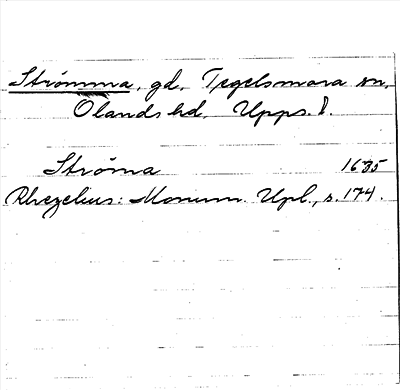 Strömma, gd, Tegelsmora sn.
Ölands hd. Upps. l.
Ströma 1635
Rhezelius: Monum. Upl., s. 174.